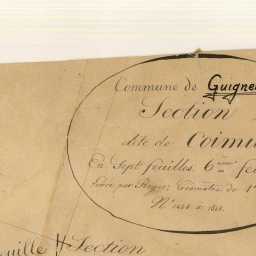 Commune de Guigne
Section
dite de Coimu
En Sept feuilles. 6ème feu
Levée par Géomètre de 1
N° à
euille Section